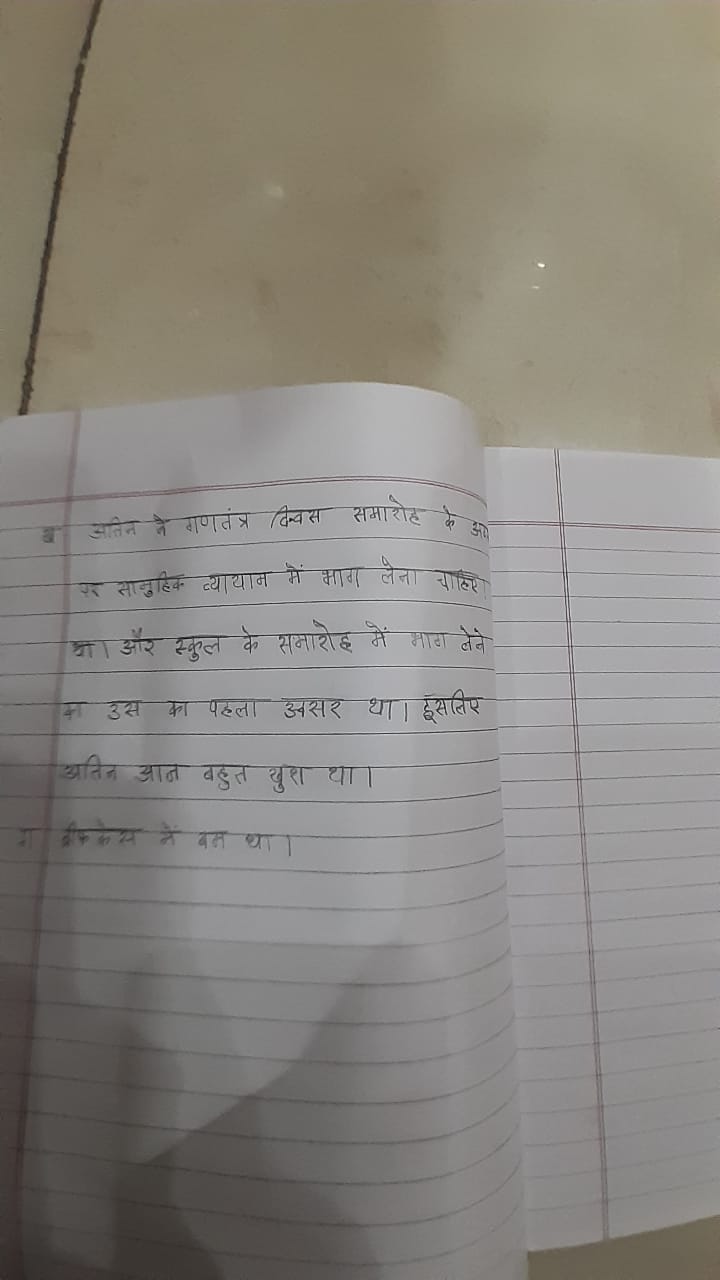 ख अतिन ने गणतंत्र दिवस समारोह के अव
पर सामुहिक व्यायाम में भाग लेना चाहिए
था। और स्कुल के समारोह में भाग लेने
का उस का पहला अवसर था। इसलिए
अतिन आज बहुत खुश था।
ग ब्रीफकेस में बम था।